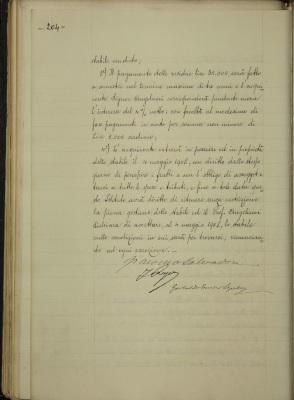 - 204 -
stabile venduto;
3°) Il pagamento delle residue lire 30.000, sarà fatto
a semestri nel termine massimo di tre anni e l'acqui
rente Signor Braghiroli corrisponderà pendente mora
l'interesse del 4% netto; con facoltà al medesimo di
fare pagamenti in conto per somme non minori di
lire 2.000 cadauno;
4°) Le acquirente entrerà in possesso ed in proprietà
dello stabile il 4 maggio 1908, con diritto dallo stesso
giorno di percepire i frutti e con l'obbligo di assogget-
tarsi a tutte le spese e tributi, e fino a tale data
avrà diritto di ritenere senza restrizione
la piena gestione dello stabile ed il Prof. Braghiroli
dichiara di accettare, al 4 maggio 1908, lo stabile
nelle condizioni in cui sarà per trovarsi, rinuncian-
do ad ogni eccezione. —
Giacomo Salvadori